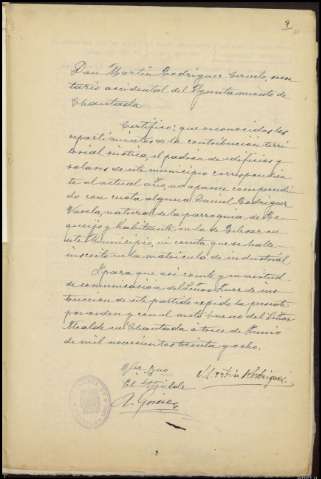 9
Don Martín Rodríguez Cervela, secre
tario accidental del Ayuntamiento de
Chantada
Certifico: que reconocidos los
repartimientos de la contribución terri
torial rústica, el padrón de edificios y
solares de este municipio correspondien
te al actual año, no aparece comprendi
do con cuota alguna Daniel Rodríguez
Varela, natural de la parroquia de Re
quejo y habitante en la de
este Municipio, ni consta que se halle
inscrito en la matrícula de industrial.
Y para que así conste y en virtud
de comunicación del Señor Juez de ins
trucción de este partido expido la presente
por orden y con el visto bueno del Señor
Alcalde en Chantada a trece de Junio
de mil novecientos treinta y ocho.
Vto. Bno
El Alcalde
Martín Rodríguez